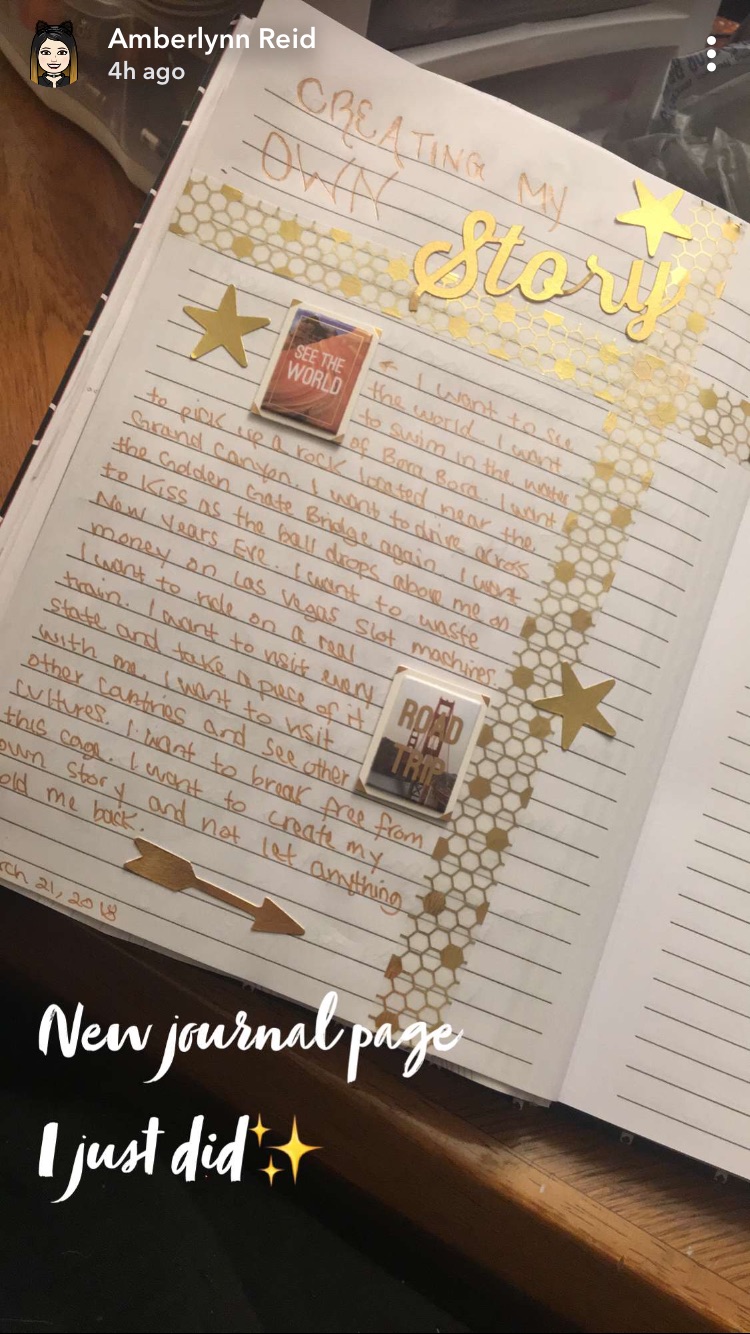 Amberlynn Reid
4h ago
CREATING MY
OWN
Story
SEE THE
WORLD
I want to see
the world. I want
to swim in the water
of Bora Bora. I want
to pick up a rock located near the
Grand Canyon. I want to drive across
the Golden Gate Bridge again. I want
to kiss as the ball drops above me on
New Years Eve. I want to waste
money on Las Vegas slot machines.
I want to ride on a real
train. I want to visit every
state and take a piece of it
with me. I want to visit
other contries and see other
cultures. I want to break free from
this cage. I want to create my
own story and not let anything
old me back.
ROAD
TRIP
rch 21, 2018
New journal page
I just did✨